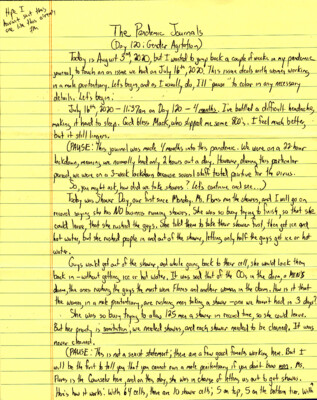 The Pandemic Journals
(Day 120: Gender Agitation)
Today is August 3rd, 2020, but I wanted to jump back a couple of weeks in my pandemic
journal, to touch on an issue we had on July 16th, 2020. This issue deals with women working
in a male penitentiary. Let's begin, and as I usually do, I'll "pause" to color in any necessary
details. Let's begin:
July 16th, 2020 - 11:37am on Day 120 - 4 months. I've battled a difficult headache,
making it hard to sleep. God bless Mack, who slipped me some 800's. I feel much better,
but it still lingers.
(PAUSE: This journal was made 4 months into this pandemic. We were on a 22-hour
lockdown, meaning we normally had only 2 hours out a day. However, during this particular
period, we were on a 3-week lockdown because several staff tested positive for the virus.
So, you might ask, how did we take showers? Let's continue and see...)
Today was Shower Day, our first since Monday. Ms. Flores ran the showers, and I will go on
record saying she has NO business running showers. She was so busy trying to finish, so that she
could leave, that she rushed the guys. She told them to take their shower first, then get ice and
hot water, but she rushed people in and out of the shower, letting only half the guys get ice or hot
water.
Guys would get out of the shower, and while going back to their cell, she would lock them
back in - without getting ice or hot water. It was sad that of the COs in the dorm, a MEN'S
dorm, the ones rushing the guys the most were Flores and another woman in the dorm. How is it that
the women in a male penitentiary, are rushing men taking a shower - one we haven't had in 3 days?
She was so busy trying to allow 125 men a shower in record time, so she could leave.
But her priority is sanitation; we needed showers, and each shower needed to be cleaned. It was
never cleaned.
(PAUSE: This is not a sexist statement; there are a few good females working here. But I
will be the first to tell you that you cannot run a male penitentiary if you don't know men. Ms.
Flores is the Counselor here, and on this day, she was in charge of letting us out to get showers.
Here's how it works: With 64 cells, there are 10 shower cells; 5 on top, 5 on the bottom tier. With